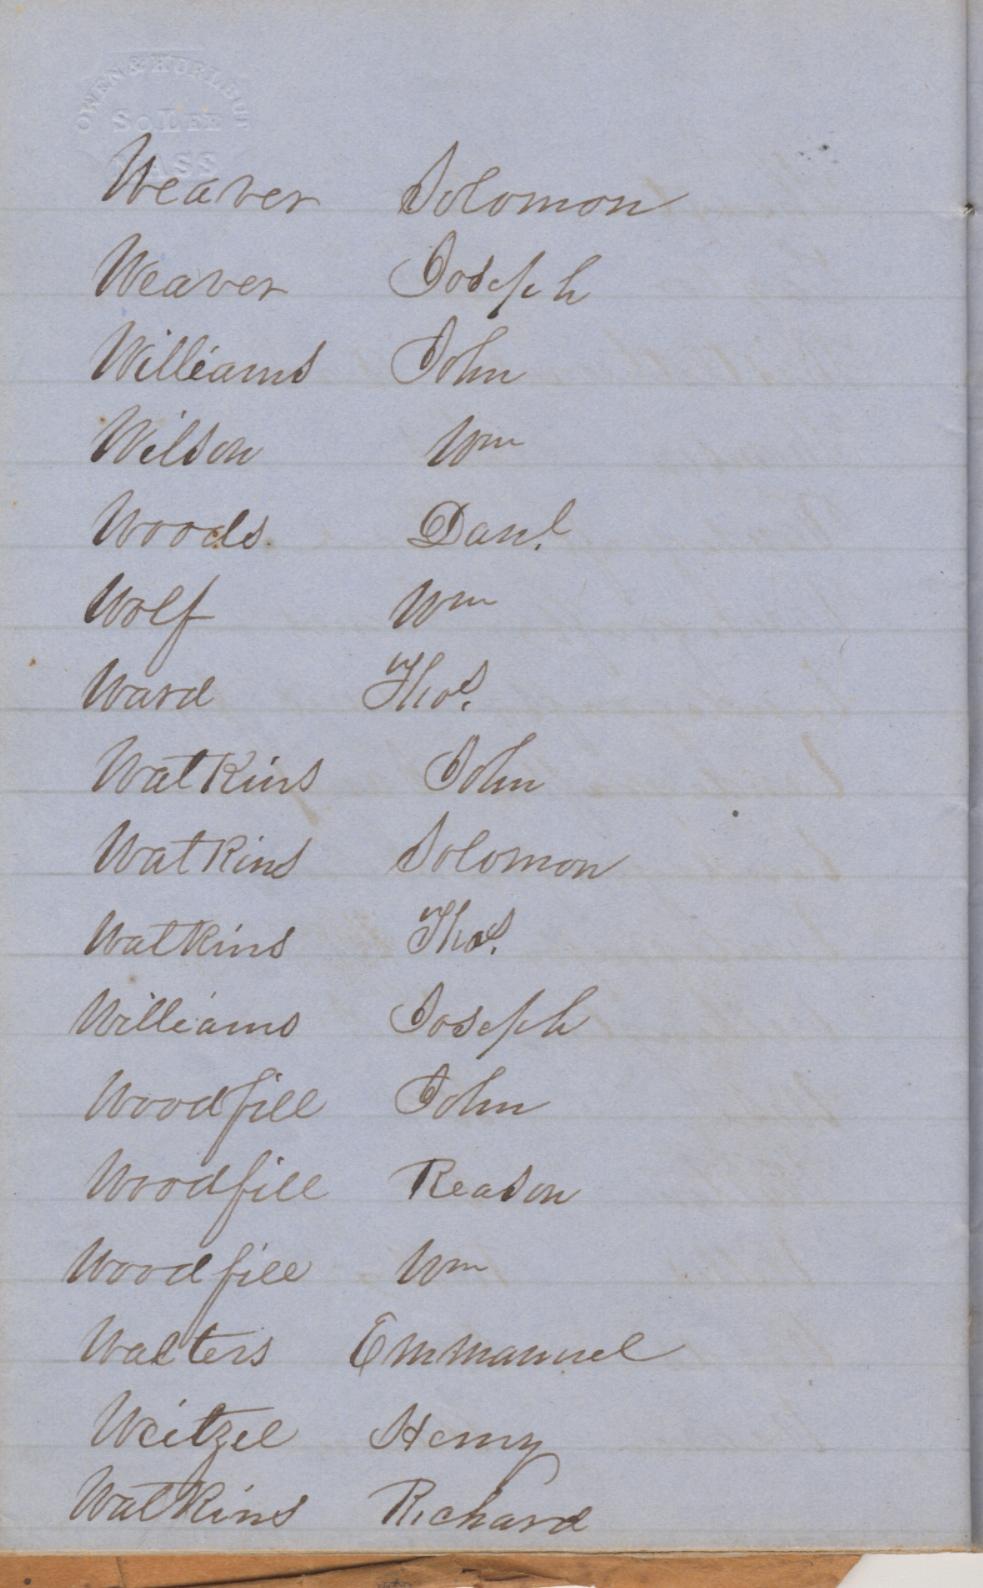 OWEN & HURLBUT
So LEE
MASS
Weaver Solomon
Weaver Joseph
Williams John
Wilson Wm
Woods Danl.
Wolf Wm
Ward Thos.
Watkins John
Watkins Solomon
Watkins Thos.
Williams Joseph
Woodfill John
Woodfill Reason
Woodfill Wm
Walters Emmanuel
Weitzel Henry
Watkins Richard